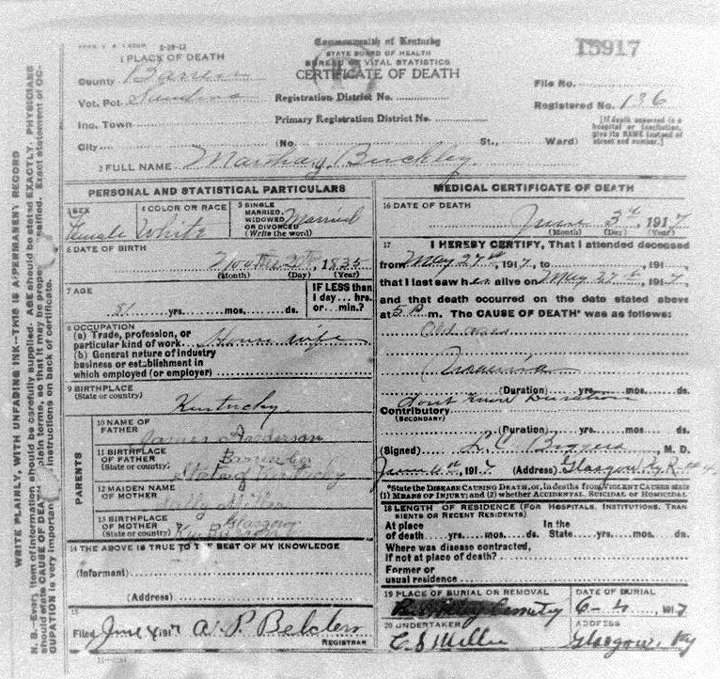 2-29-12
Commonwealth of Kentucky
STATE BOARD OF HEALTH
BUREAU OF VITAL STATISTICS
CERTIFICATE OF DEATH
15917
1 PLACE OF DEATH
County Barren
Vot. Pct.
Inc. Town
City
Registration District No.
Primary Registration District No.
(No. St., Ward)
File No.
Registered No. 136
[If death occurred in a hospital or institution, give its NAME instead of street and number.]
2 FULL NAME Buckley
PERSONAL AND STATISTICAL PARTICULARS
3 SEX
Female
4 COLOR OR RACE
White
5 SINGLE
MARRIED,
WIDOWED
OR DIVORCED
(Write the word)
Married
6 DATE OF BIRTH
20th, 1835
(Month) (Day) (Year)
7 AGE
81 yrs. mos. ds.
IF LESS than
1 day... hrs.
or... min.?
8 OCCUPATION
(a) Trade, profession, or
particular kind of work House wife
(b) General nature of industry
business or establishment in
which employed (or employer)
9 BIRTHPLACE
(State or country)
Kentucky
PARENTS
10 NAME OF
FATHER
James Anderson
11 BIRTHPLACE
OF FATHER
(State or country)
State of Kentucky
12 MAIDEN NAME
OF MOTHER
13 BIRTHPLACE
OF MOTHER
(State or country)
Glasgow
Ky
14 THE ABOVE IS TRUE TO THE BEST OF MY KNOWLEDGE
(Informant)
(Address)
15
Filed June 8 1917 A. P. Belden
REGISTRAR
MEDICAL CERTIFICATE OF DEATH
16 DATE OF DEATH
June 3rd, 1917
(Month) (Day) (Year)
17 I HEREBY CERTIFY, That I attended deceased
from May 27th, 1917, to 191
that I last saw her alive on May 27th, 1917,
and that death occurred on the date stated above
at 5 m. The CAUSE OF DEATH* was as follows:
Old
(Duration) yrs. mos. ds.
Dont know Duration
Contributory
(SECONDARY)
(Duration) yrs. mos. ds.
(Signed) C. M. D.
191 (Address) Glasgow Ky R
*State the DISEASE CAUSING DEATH, or, in deaths from VIOLENT CAUSES state
(1) MEANS OF INJURY; and (2) whether ACCIDENTAL, SUICIDAL or HOMICIDAL
18 LENGTH OF RESIDENCE (FOR HOSPITALS, INSTITUTIONS, TRAN
SIENTS OR RECENT RESIDENTS)
At place In the
of death yrs. mos. ds. State yrs. mos. ds.
Where was disease contracted,
if not at place of death?
Former or
usual residence
19 PLACE OF BURIAL OR REMOVAL
Cemetry
DATE OF BURIAL
6- 1917
20 UNDERTAKER
C S Miller
ADDRESS
Glasgow, Ky
WRITE PLAINLY, WITH UNFADING INK—THIS IS A PERMANENT RECORD
N. B.—Every item of information should be carefully supplied. AGE should be stated EXACTLY. PHYSICIANS
should state CAUSE OF DEATH in plain terms, so that it may be properly classified. Exact statement of OC-
CUPATION is very important. instructions on back of certificate.